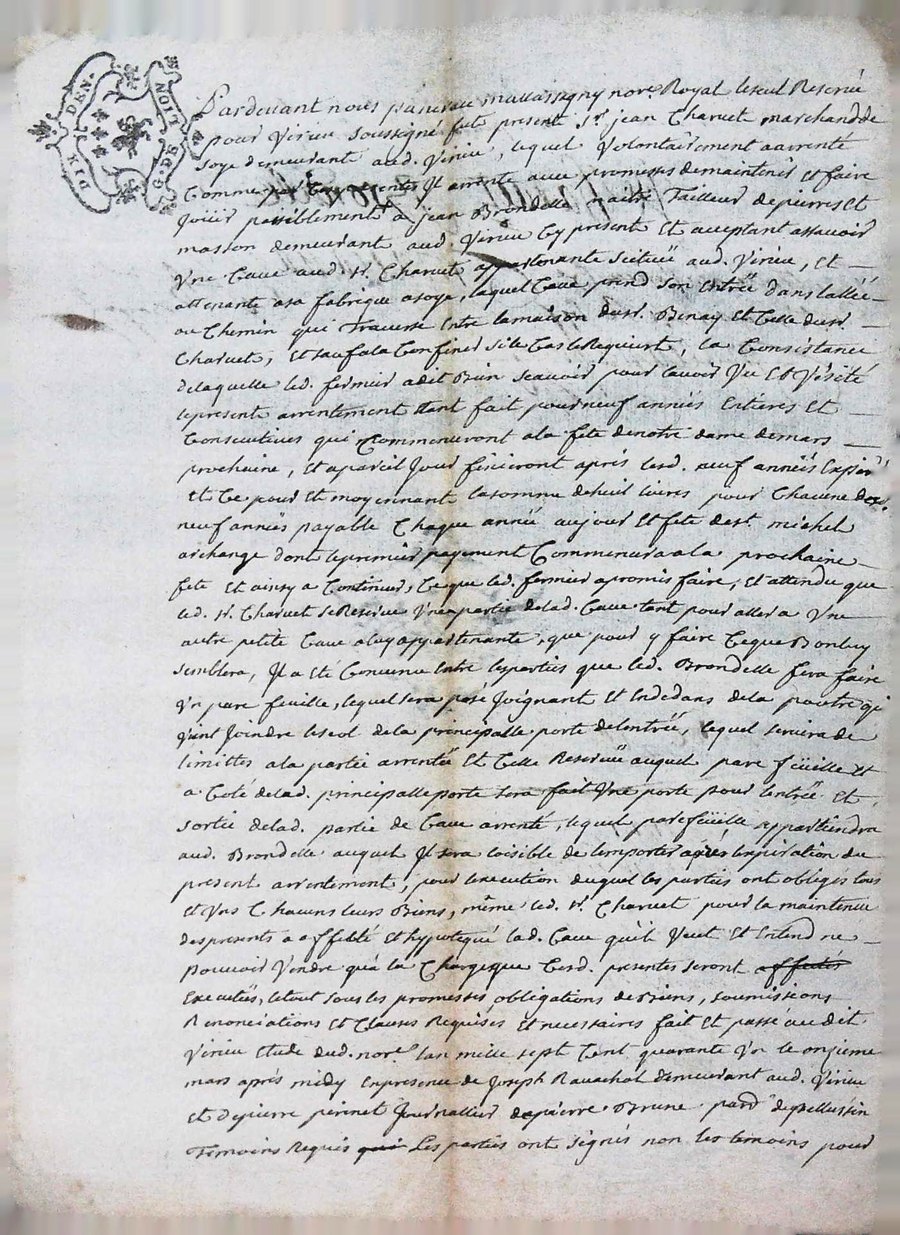 DIX DEN. G. DE NOIT
Pardevant nous mallassigny nore. Royal le seul Reservé
pour Virieu soussigné fut present Sr. jean Charvet marchand de
soye demeurant aud. Virieu, lequel volontairement a arenté
Comme par Ces presentes Jl arrente avec promesses de maintenir et faire
Joüir paisiblement a jean Brondelle maitre Tailleur de pierres Et
masson demeurant aud. Virieu Cy present Et acceptant assavoir
Vne Cave aud. sr. Charvet appartenante scituëe aud. Virieu, Et
attenante a sa fabrique a soye, laquel Cave prend son Entrëe dans l'allëe
ou Chemin qui Traverse Entre la maison dusr. Binay Et Celle dusr.
Charvet, Et sauf a la Confiner si le Cas le Requiert, la Consistance
de laquelle led. fermier a dit Bien scavoir pour l'avoir Vu Et Visité
le present arrentement Etant fait pour neuf années Entieres Et
Consecutives qui Commenceront a la fete de notre dame de mars
prochaine, Et a pareil Jour finiront après lesd. neuf années Expirés
Et Ce pour Et moyennant la somme de huit livres pour Chacune desd.
neuf annëes payable Chaque année au jour Et fete de st. michel
archange dont le premier payement Commencera a la prochaine
fete Et ainsy a Continuer, Ce que led. fermier a promis faire, Et attendu que
led. sr. Charvet se Reserve Vne partie de lad. Cave tant pour aller a Vne
autre petite Cave a luy appartenante, que pour y faire Ce que Bon luy
semblera, Jl a eté Convenu Entre les parties que led. Brondelle fera faire
Vn pare feuille, lequel sera posé Joignant Et En dedans de la poutre qi
Vient Joindre le seol de la principalle porte de l'entrëe, lequel servira de
limittes a la partie arrentëe Et Celle Reservëe auquel pare feüille Et
a Coté de lad. principalle porte sera fait Vne porte pour l'entrëe Et
sortie de lad. partie de Cave arrenté, lequel pare feüille appartiendra
aud. Brondelle auquel Jl sera loisible de l'emporter après l'expiration du
present arrentement, pour l'execution duquel les parties ont obligés tous
Et Vns Chacuns leurs Biens, même led. sr. Charvet pour la maintenue
des presentes a affecté Et hypotequé lad. Cave qu'il Veut Et Entend ne
pouvoir Vendre qu'à la Charge que Cesd. presentes seront affectes
Executëes, le tout sous les promesses obligations de Biens, soumissions
Renonciations Et Clauses Requises Et necessaires fait Et passé au dit
Virieu Etude dud. nore. l'an mille sept Cent quarante Vn le onzieme
mars après midy En presence de Joseph Ravachol demeurant aud. Virieu
Et de pierre perinet Journallier de pierre Brune de pellussin
Temoins Requis qui Les parties ont signés non les temoins pour